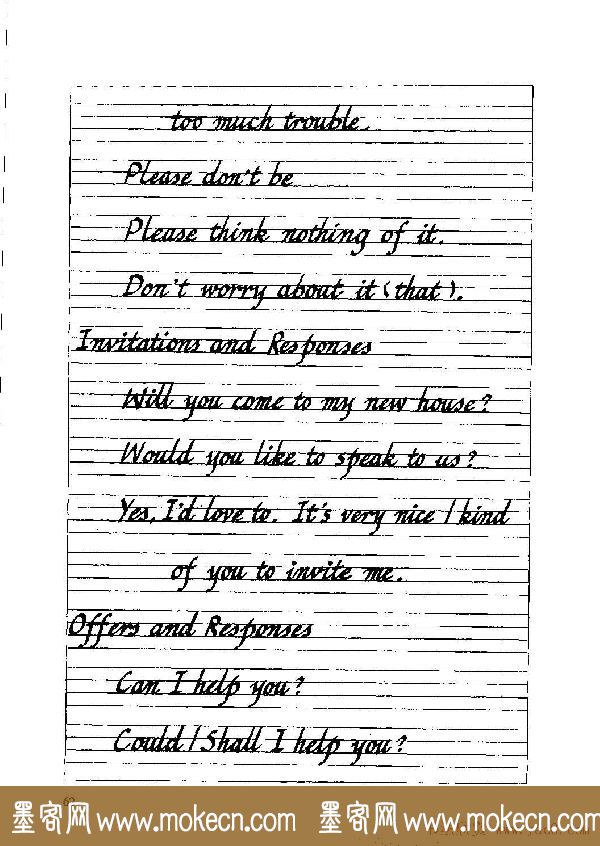 too much trouble.
Please don't be
Please think nothing of it.
Don't worry about it (that).
Invitations and Responses
Will you come to my new house?
Would you like to speak to us?
Yes, I'd love to. It's very nice / kind
of you to invite me.
Offers and Responses
Can I help you?
Could / Shall I help you?
墨客网 www.mokecn.com 墨客网 www.mokecn.com